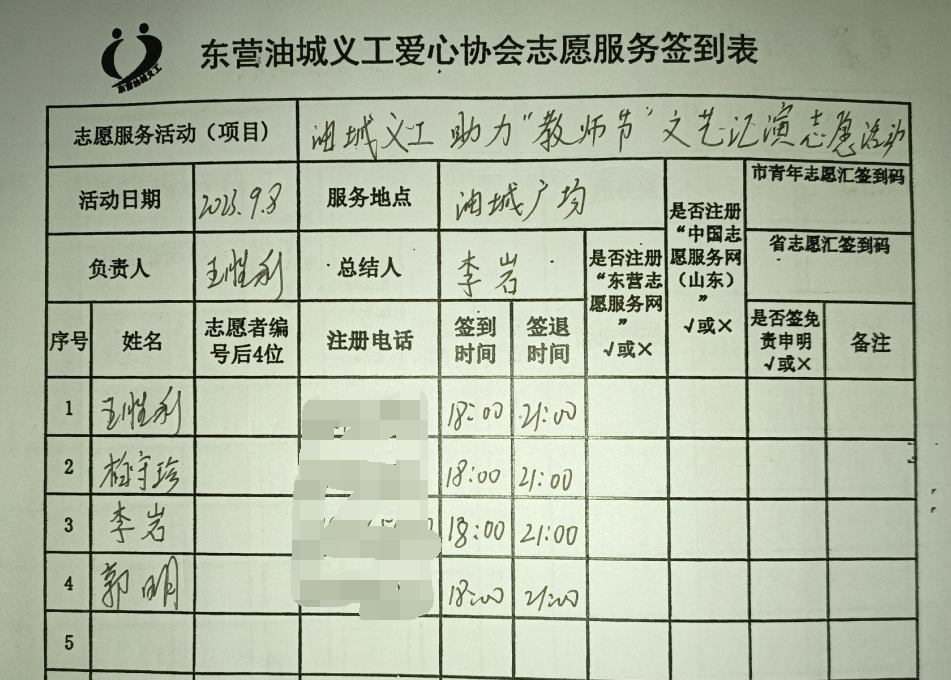 东营油城义工
东营油城义工爱心协会志愿服务签到表
志愿服务活动（项目） 油城义工 助力“教师节”文艺汇演志愿活动
活动日期 2023.9.8 服务地点 油城广场 是否注册“中国志愿服务网（山东）” √或× 市青年志愿汇签到码
负责人 王胜利 总结人 李岩 是否注册“东营志愿服务网” √或× 省志愿汇签到码
序号 姓名 志愿者编号后4位 注册电话 签到时间 签退时间 是否签免责申明 √或× 备注
1 王胜利 18:00 21:00
2 守珍 18:00 21:00
3 李岩 18:00 21:00
4 郭明 18:00 21:00
5